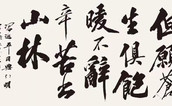 但願蒼
生俱飽
暖不辭
辛苦出
山林